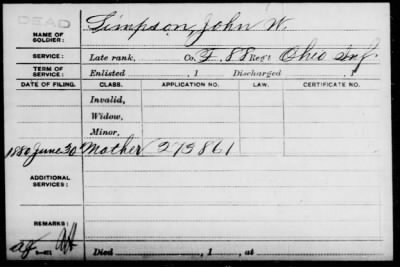 DEAD
NAME OF SOLDIER: Simpson, John W.
SERVICE: Late rank, Co. F, 88 Reg't Ohio Inf.
TERM OF SERVICE: Enlisted , 1 Discharged , 1
DATE OF FILING. CLASS. APPLICATION NO. LAW. CERTIFICATE NO.
Invalid,
Widow,
Minor,
1880 June 30 Mother 273861
ADDITIONAL SERVICES:
REMARKS:
Died , 1 , at